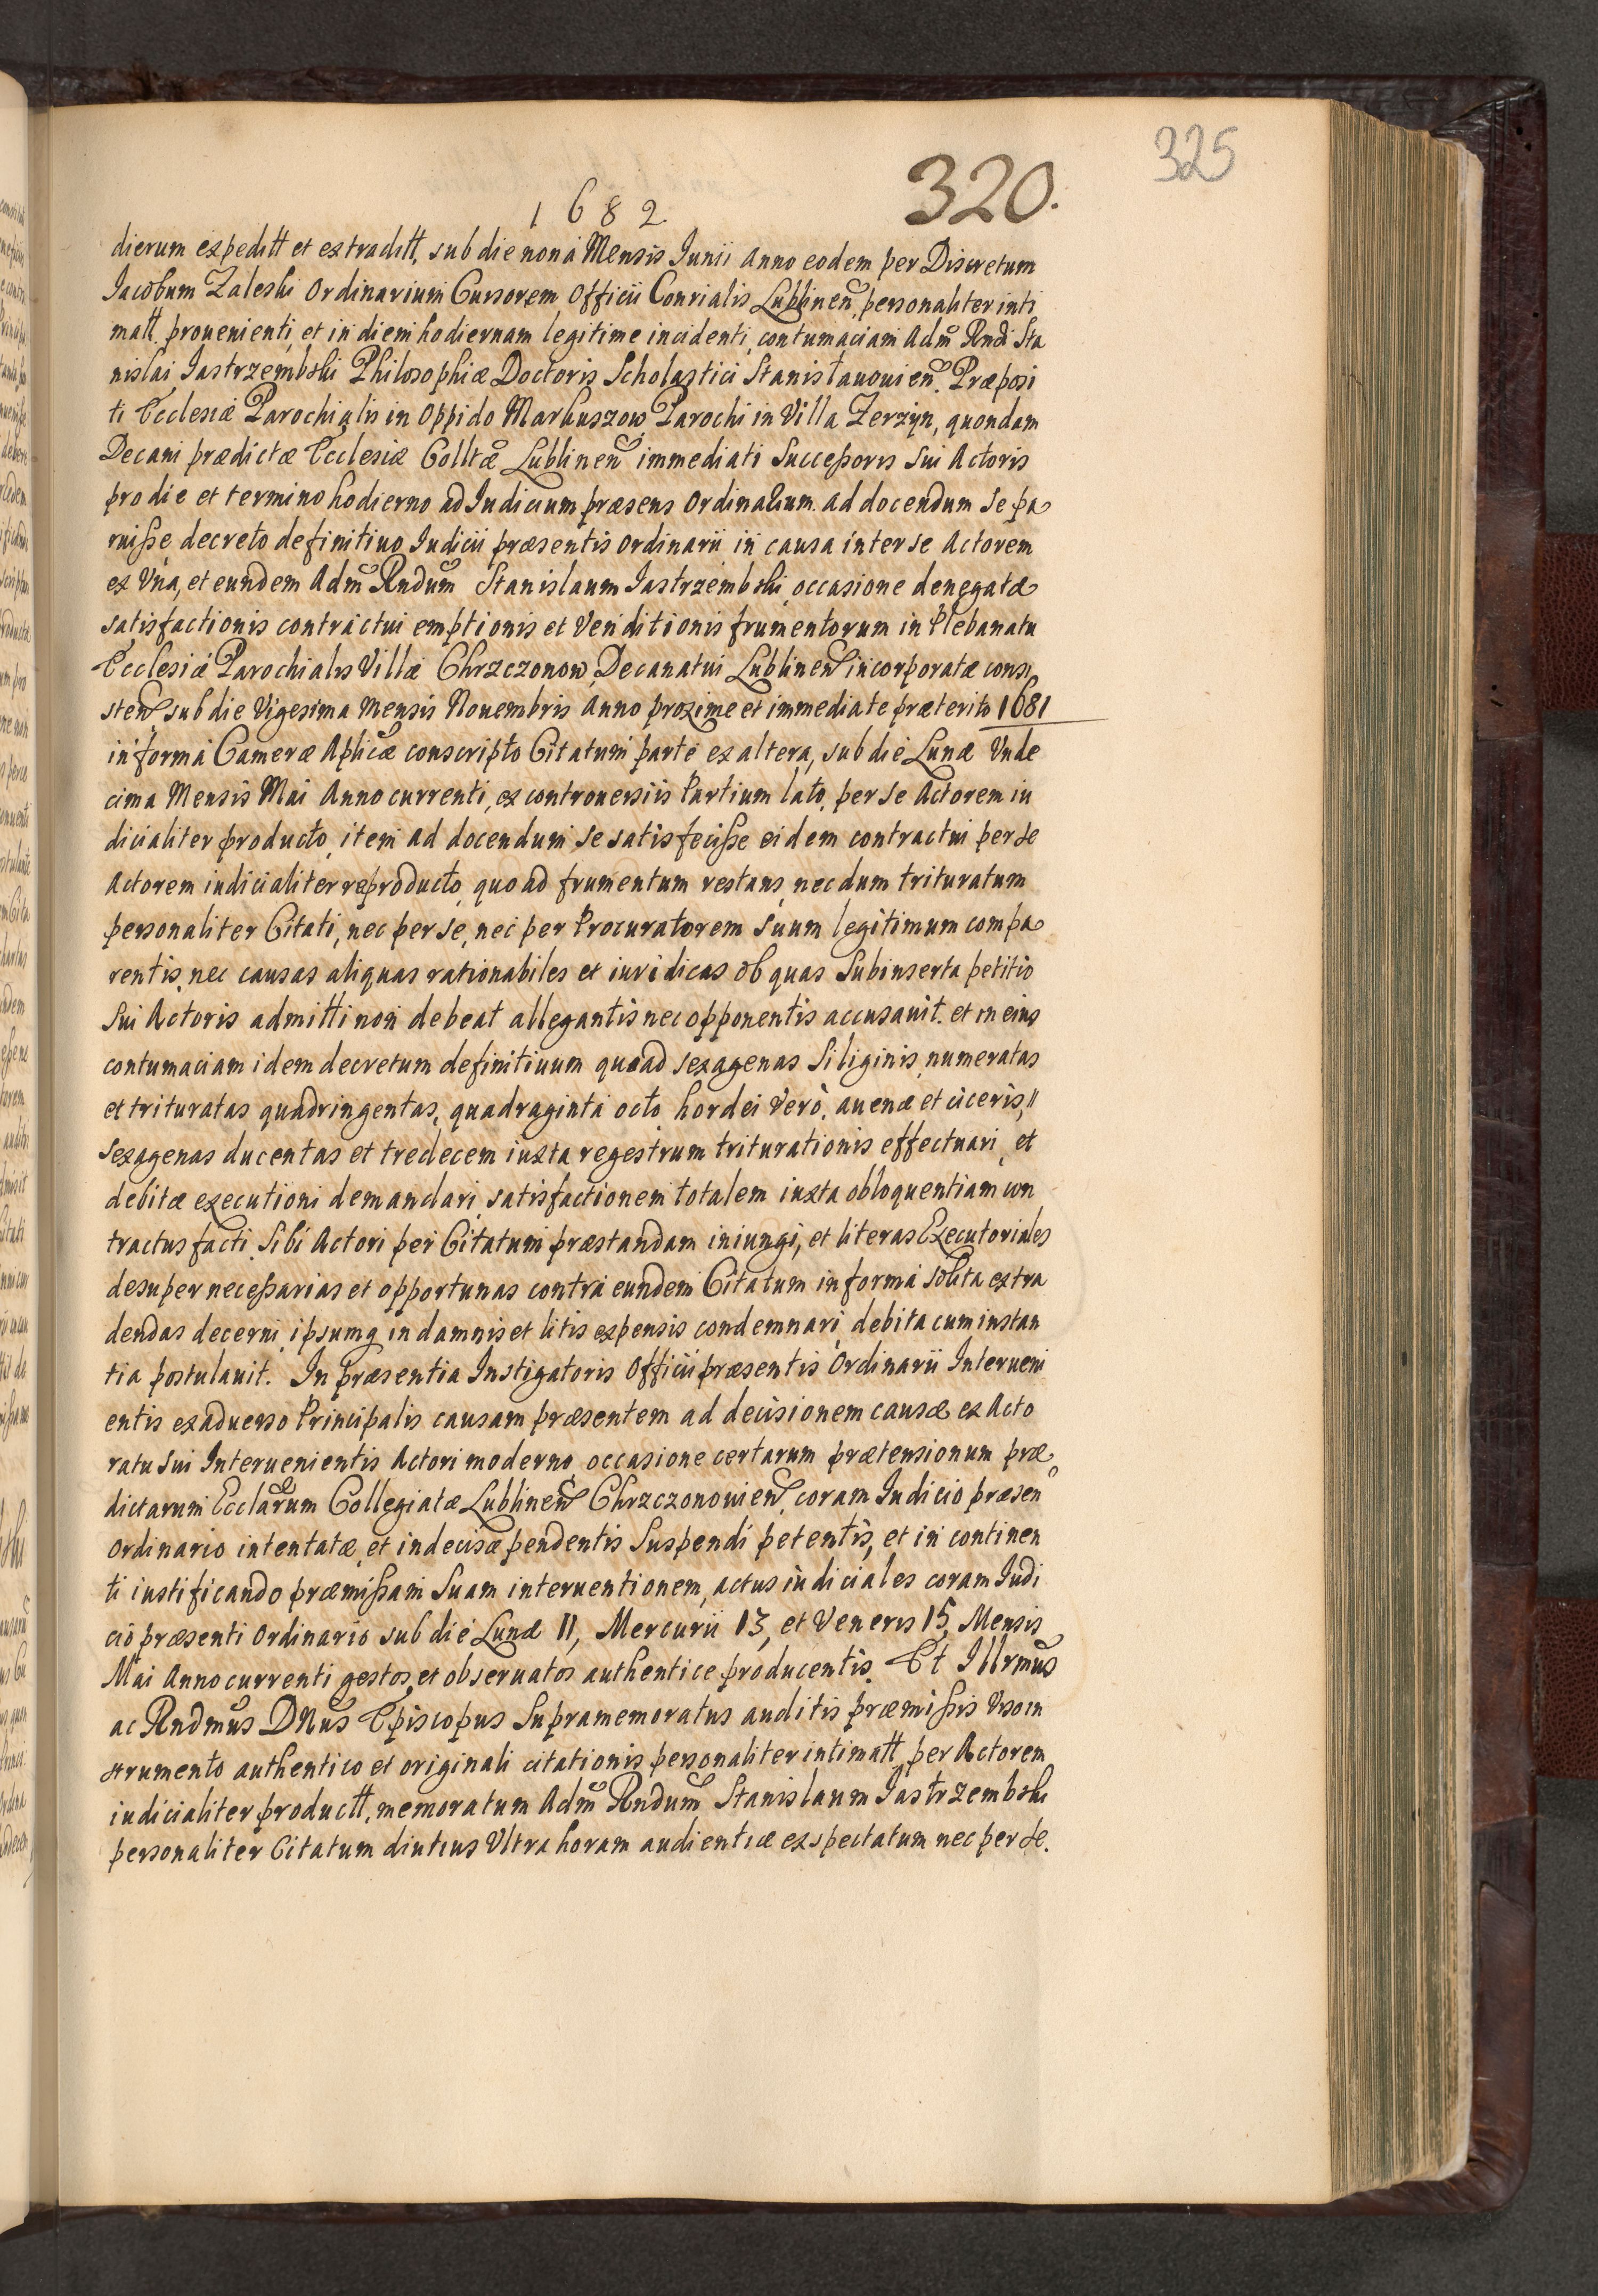 325
320.
1682
dierum expeditt et extraditt, sub die nona Mensis Junii Anno eodem per Discretum
Jacobum Zaleski Ordinarium Cursorem Officii Conrialis Lublinen personaliter inti
matt prouenienti, et in diem hodiernam legitime incidenti, contumaciam Adm Rndi Sta
nislai Jastrzembski Philosophiæ Doctoris Scholastici Stanislauouien. Præposi
ti Ecclesiæ Parochialis in Oppido Markuszow, Parochi in Villa Zerzyn, quondam
Decani prædictæ Ecclesiæ Colltæ Lublinen immediati Successoris Sui Actoris
pro die et termino hodierno ad Judicium præsens Ordinarium ad docendum se pa
ruisse decreto definitiuo Judicii præsentis Ordinarii in causa inter se Actorem
ex Vna, et eundem Adm Rndum Stanislaum Jastrzembski, occasione denegatæ
satisfactionis contractui emptionis et Venditionis frumentorum in Plebanatu
Ecclesiæ Parochialis Villæ Chrzczonow, Decanatui Lublinen incorporatæ consi
sten sub die Vigesima Mensis Nouembris Anno proxime et immediate præterito 1681
in forma Cameræ Aplicæ conscripto Citatum parte ex altera, sub die Lunæ Vnde
cima Mensis Mai Anno currenti, ex controuersiis Partium lato, per se Actorem iu
dicialiter producto, item ad docendum se satisfecisse eidem contractui per se
Actorem iudicialiter reproducto, quoad frumentum restans, necdum trituratum
personaliter Citati, nec per se, nec per Procuratorem suum legitimum compa
rentis, nec causas aliquas rationabiles et iuridicas ob quas Subinserta petitio
Sui Actoris admitti non debeat allegantis nec opponentis accusauit. et in eius
contumaciam idem decretum definitiuum quoad sexagenas Siliginis, numeratas
et trituratas quadringentas, quadraginta octo, hordei Vero, auenæ et ciceris,
sexagenas ducentas et tredecem iuxta regestrum triturationis effectuari, et
debitæ executioni demandari, satisfactionem totalem iuxta obloquentiam con
tractus facti Sibi Actori per Citatum præstandam iniungi, et literas Executoriales
desuper necessarias et opportunas contra eundem Citatum in forma Solita extra
dendas decerni, ipsumq in damnis et litis expensis condemnari, debita cum instan
tia postulauit. In præsentia Instigatoris Officii præsentis Ordinarii Interueni
entis ex aduerso Principalis causam præsentem ad decisionem causæ ex Acto
ratu Sui Interuenientis Actori moderno, occasione certarum prætensionum præ
dictarum Ecclarum Collegiatæ Lublinen Chrzczonouien, coram Judicio præsen
Ordinario intentatæ, et indecisæ pendentis Suspendi petentis, et in continen
ti iustificando præmissam Suam interuentionem, actus iudiciales coram Judi
cio præsenti Ordinario sub die Lunæ 11, Mercurii 13, et Veneris 15, Mensis
Mai Anno currenti gestos, et obseruatos authentice producentis. Et Illrmus
ac Rndmus DNus Episcopus Supramemoratus auditis præmissis Viso in
strumento authentico et originali citationis personaliter intimatt, per Actorem
iudicialiter productt, memoratum Adm Rndum Stanislaum Jastrzembski
personaliter Citatum diutius Vltra horam audientiæ exspectatum nec per se.